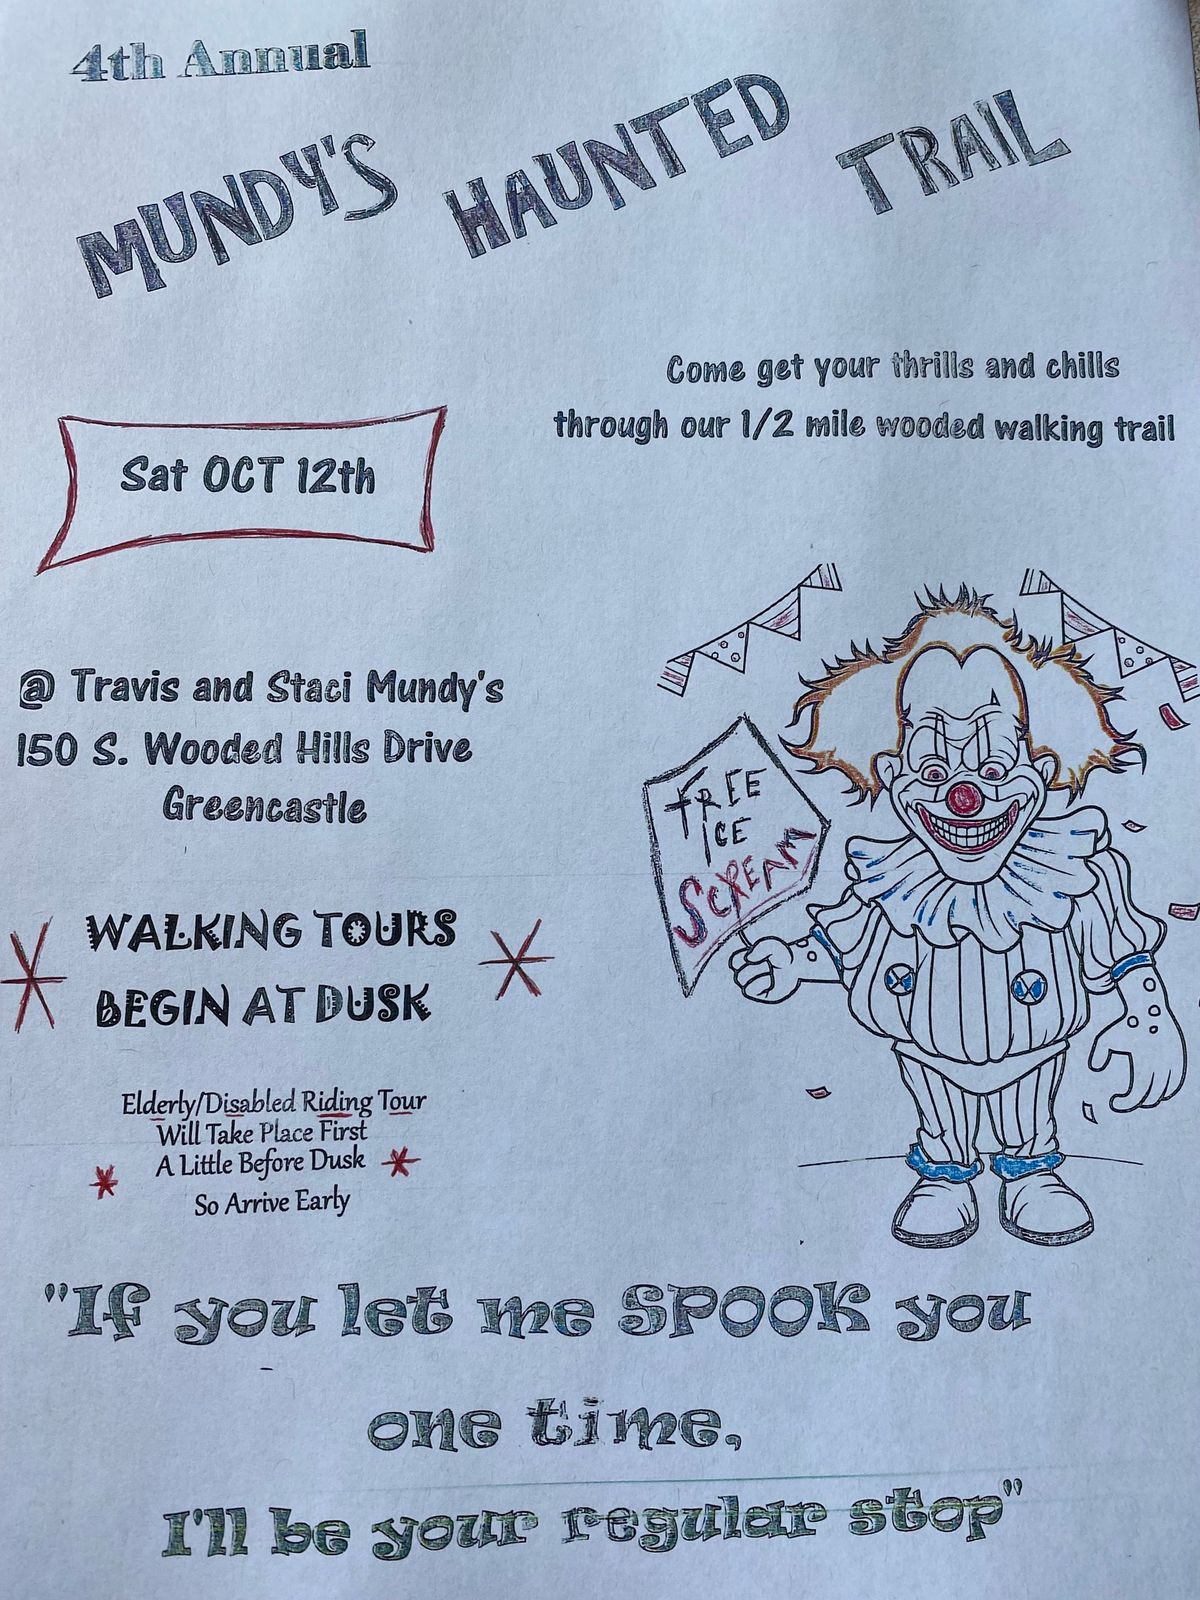 4th Annual
MUNDY'S HAUNTED TRAIL
Come get your thrills and chills
through our 1/2 mile wooded walking trail
Sat OCT 12th
@ Travis and Staci Mundy's
150 S. Wooded Hills Drive
Greencastle
FREE
ICE
SCREAM
WALKING TOURS
BEGIN AT DUSK
Elderly/Disabled Riding Tour
Will Take Place First
A Little Before Dusk
So Arrive Early
"If you let me SPOOK you
one time,
I'll be your regular stop"